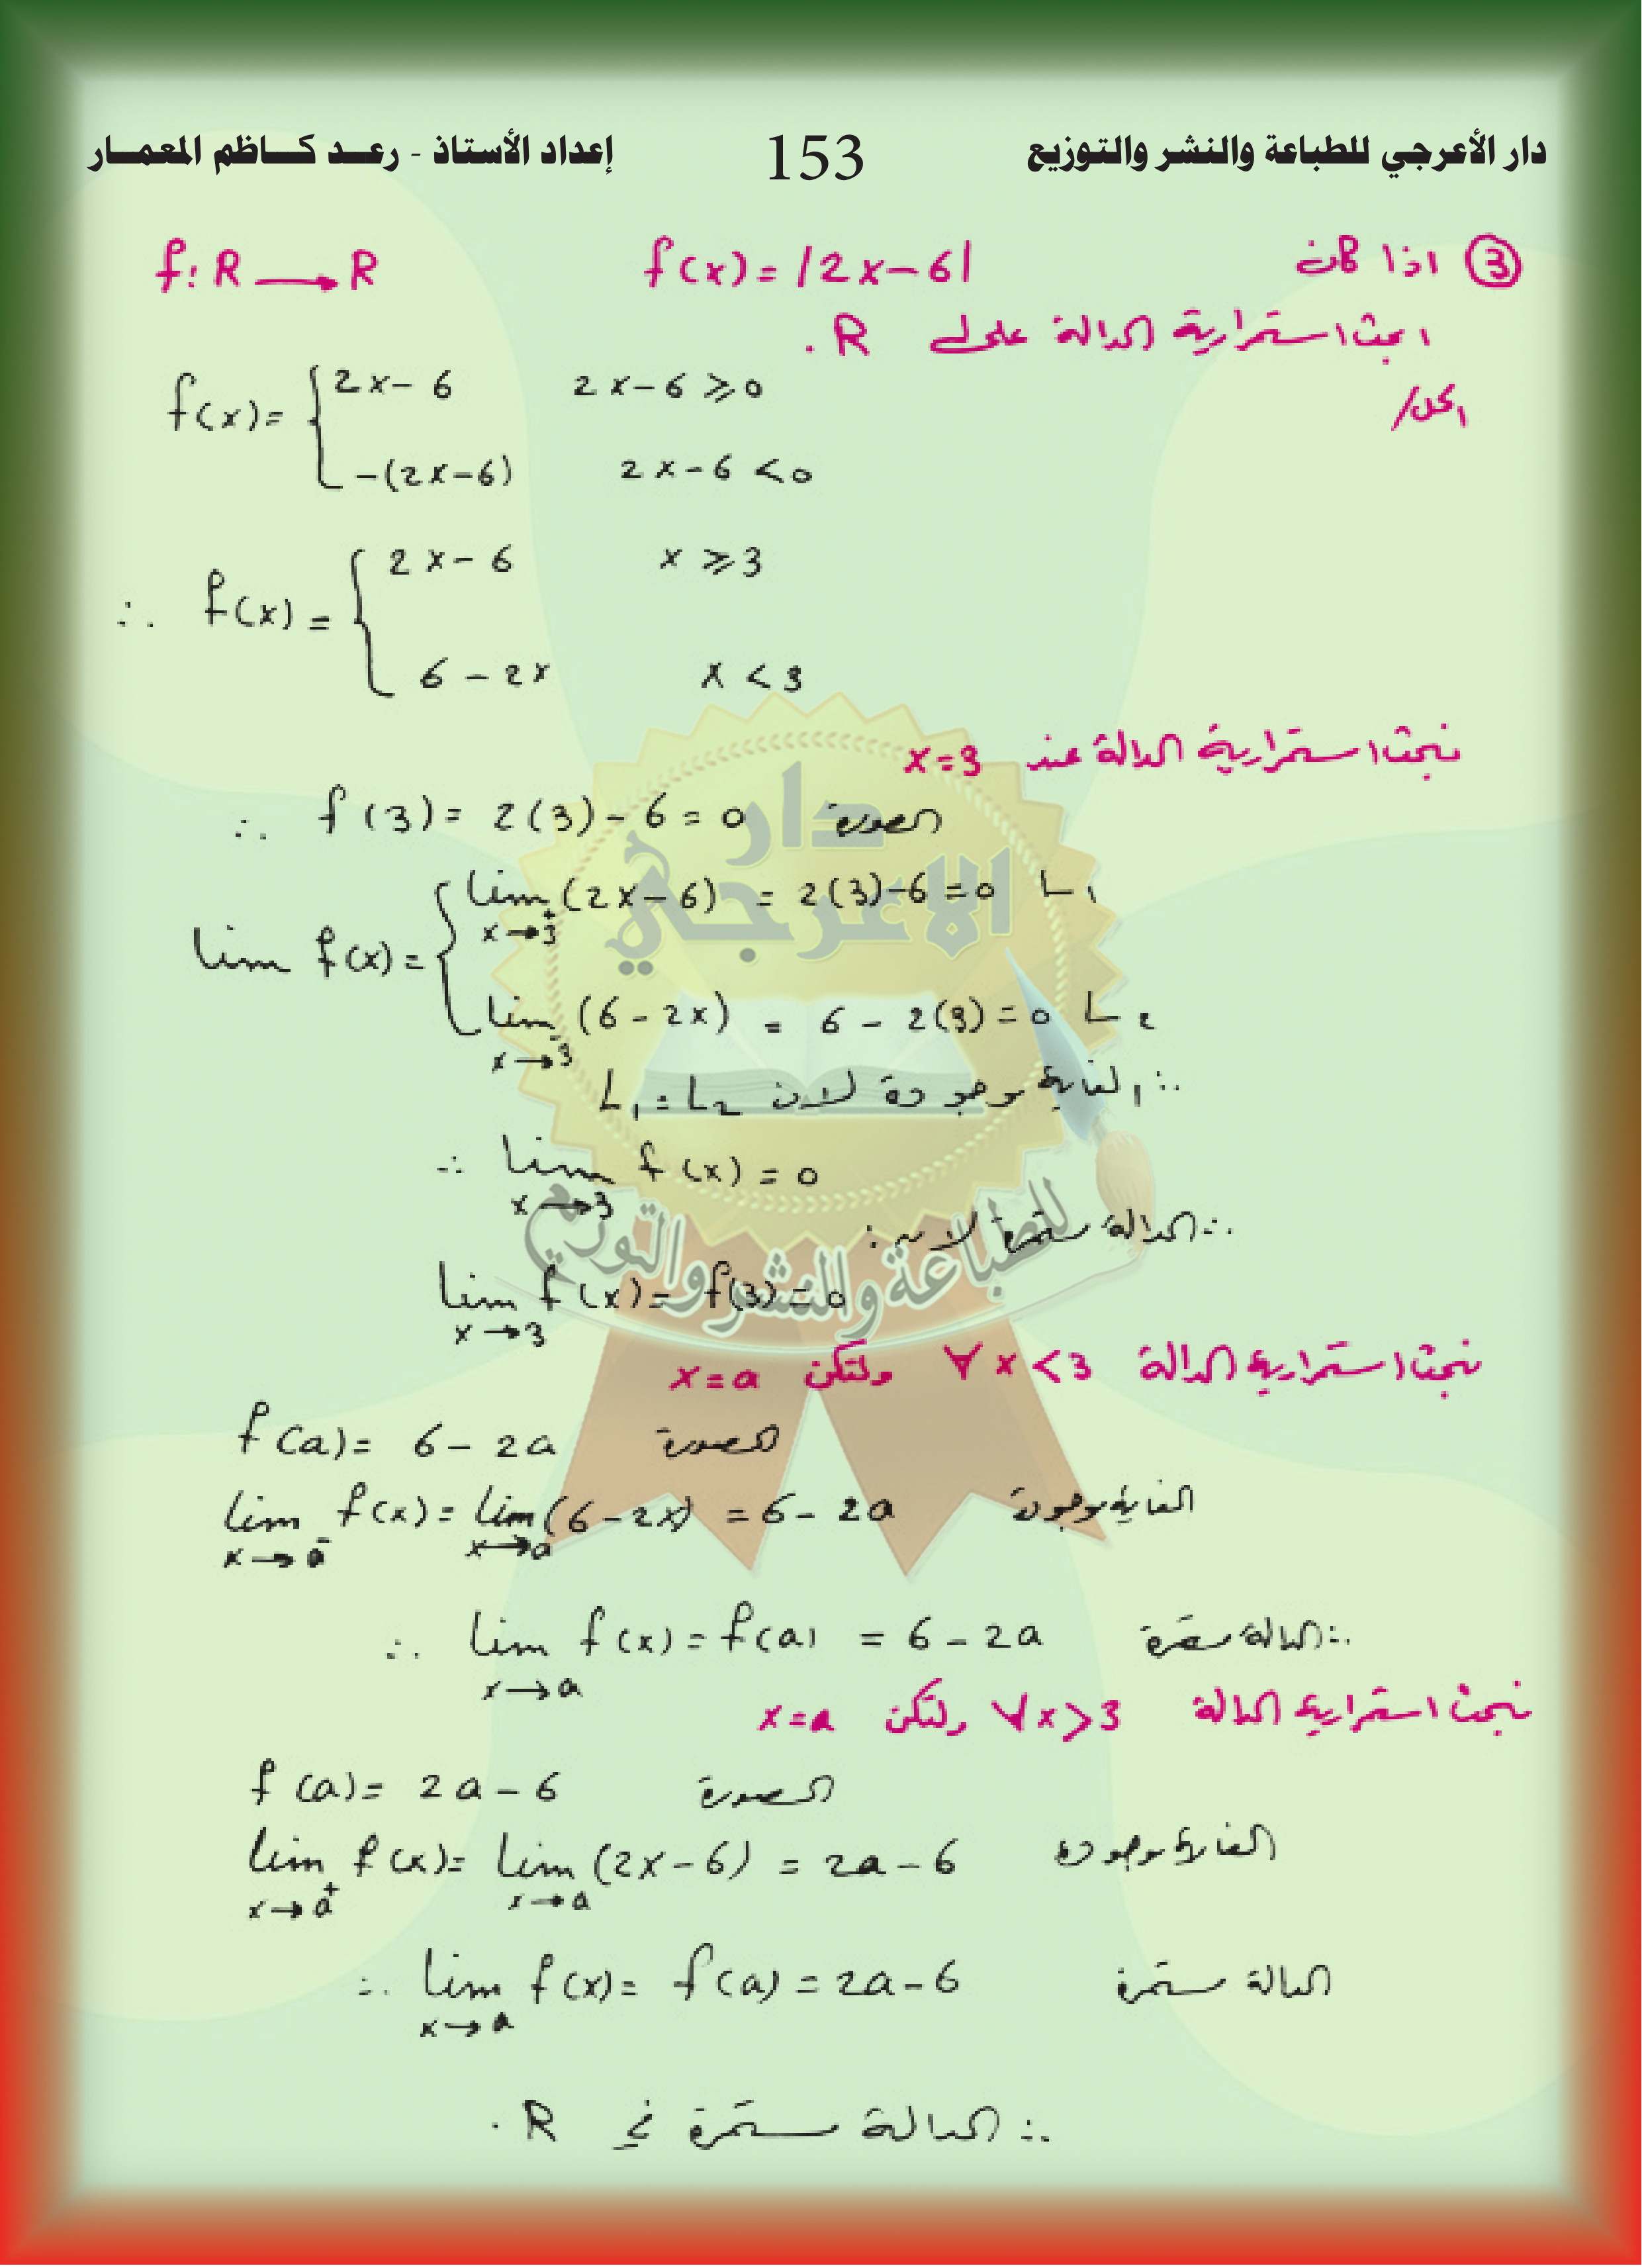 دار الأعرجي للطباعة والنشر والتوزيع 153 إعداد الأستاذ - رعـد كـاظم المعمـار
③ اذا كان f(x) = |2x-6| f: R → R
ابحث استمرارية الدالة على R .
الحل/
f(x) = { 2x-6 2x-6 ⩾ 0
-(2x-6) 2x-6 < 0
∴ f(x) = { 2x-6 x ⩾ 3
6-2x x < 3
نبحث استمرارية الدالة عند x=3
∴ f(3) = 2(3)-6 = 0 الصورة
lim f(x) = { lim x→3⁺ (2x-6) = 2(3)-6 = 0 L₁
lim x→3⁻ (6-2x) = 6-2(3) = 0 L₂
∴ الغاية موجودة لان L₁ = L₂
∴ lim x→3 f(x) = 0
∴ الدالة مستمرة لان :
lim x→3 f(x) = f(3) = 0
نبحث استمرارية الدالة ∀x<3 ولتكن x=a
f(a) = 6-2a الصورة
lim x→a⁻ f(x) = lim x→a (6-2x) = 6-2a الغاية موجودة
∴ lim x→a f(x) = f(a) = 6-2a ∴ الدالة مستمرة
نبحث استمرارية الدالة ∀x>3 ولتكن x=a
f(a) = 2a-6 الصورة
lim x→a⁺ f(x) = lim x→a (2x-6) = 2a-6 الغاية موجودة
∴ lim x→a f(x) = f(a) = 2a-6 الدالة مستمرة
∴ الدالة مستمرة في R .
دار
الاعرجي
للطباعة والنشر والتوزيع